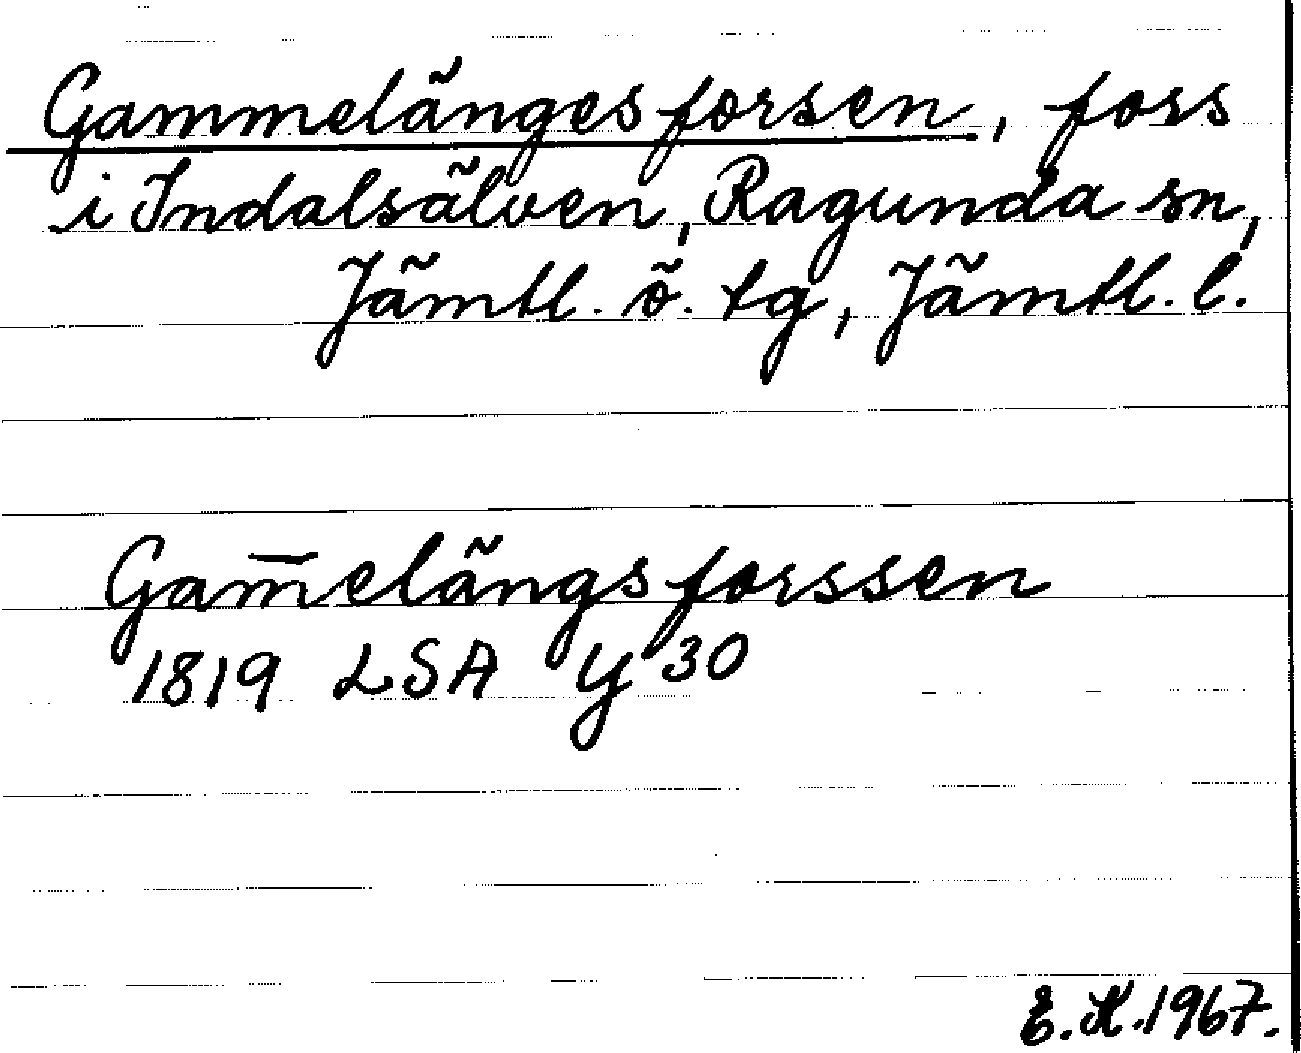 Gammelängesforsen, fors
i Indalsälven, Ragunda sn,
Jämtl. ö. tg, Jämtl. l.
Gam̅elängsforssen
1819 LSA Y 30
E. K. 1967.